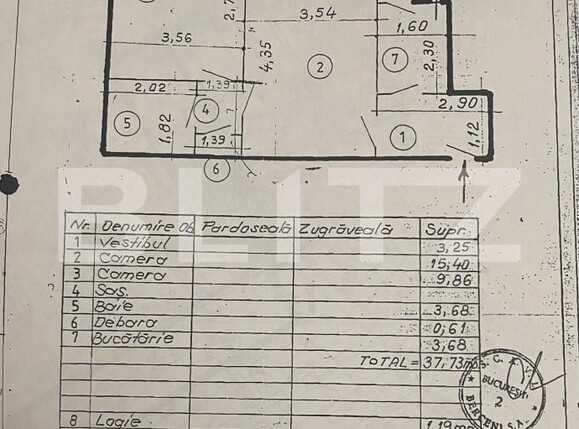 2,7
3,54
1,60
3,56
4,35
2
7
2,30
2,02
1,39
2,90
5
1,82
4
1,39
1
1,12
6
BLITZ
Nr. Denumire Pardoseală Zugrăveală Supr.
1 Vestibul 3,25
2 Camera 15,40
3 Camera 9,86
4 Sas.
5 Baie 3,68
6 Debara 0,61
7 Bucătărie 3,68
TOTAL = 37,73
BUCUREȘTI
2
BERCENI S.A.
8 Logie 1,19